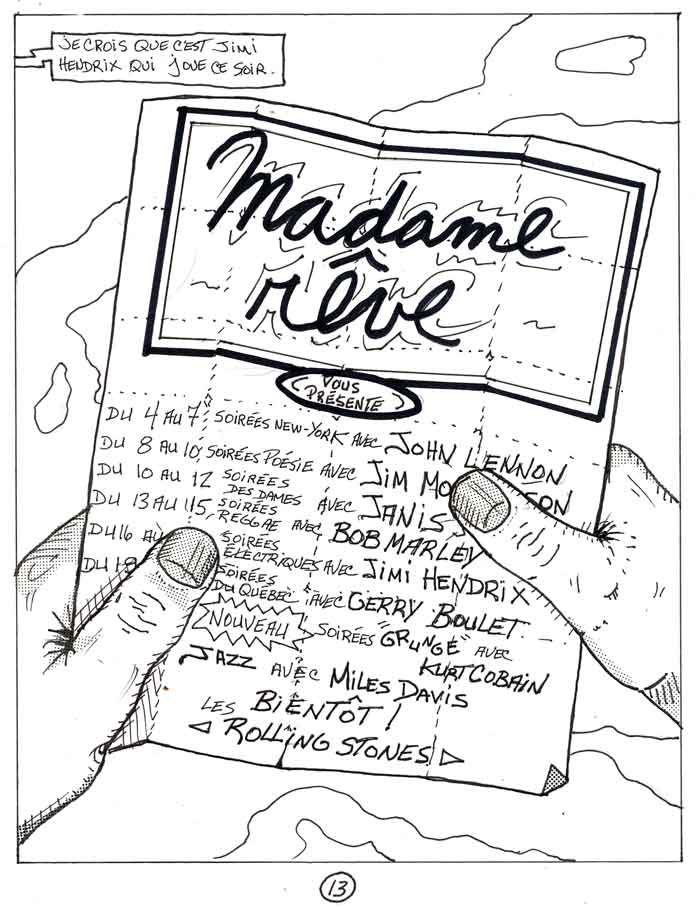 JE CROIS QUE C'EST JIMI
HENDRIX QUI JOUE CE SOIR.
Madame
rêve
VOUS
PRÉSENTE
DU 4 AU 7 SOIRÉES NEW-YORK AVEC JOHN LENNON
DU 8 AU 10 SOIRÉES POÉSIE AVEC JIM MO SON
DU 10 AU 12 SOIRÉES DES DAMES AVEC JANIS
DU 13 AU 15 SOIRÉES REGGAE AVEC BOB MARLEY
DU 16 AU SOIRÉES ÉLECTRIQUES AVEC JIMI HENDRIX
DU 18 SOIRÉES DU QUÉBEC AVEC GERRY BOULET
NOUVEAU! SOIRÉES "GRUNGE" AVEC
KURT COBAIN
JAZZ AVEC MILES DAVIS
LES BIENTÔT!
ROLLING STONES
13